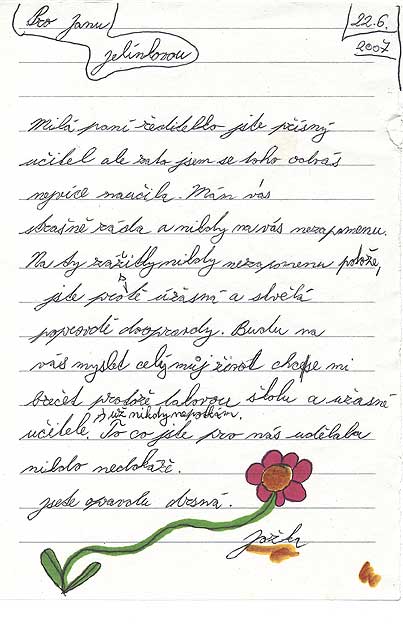 Pro Janu
Jelínkovou
22.6.
2007
Milá paní ředitelko jste přísný
učitel ale zato jsem se toho od vás
nejvíce naučila. Mám vás
strašně ráda a nikdy na vás nezapomenu.
Na ty zážitky nikdy nezapomenu protože,
jste prostě úžasná a skvělá
popravdě doopravdy. Budu na
vás myslet celý můj život chce se mi
brečet protože takovou školu a úžasné
učitele už nikdy nepotkám. To co jste pro nás udělala
nikdo nedokáže.
jste opravdu drsná.